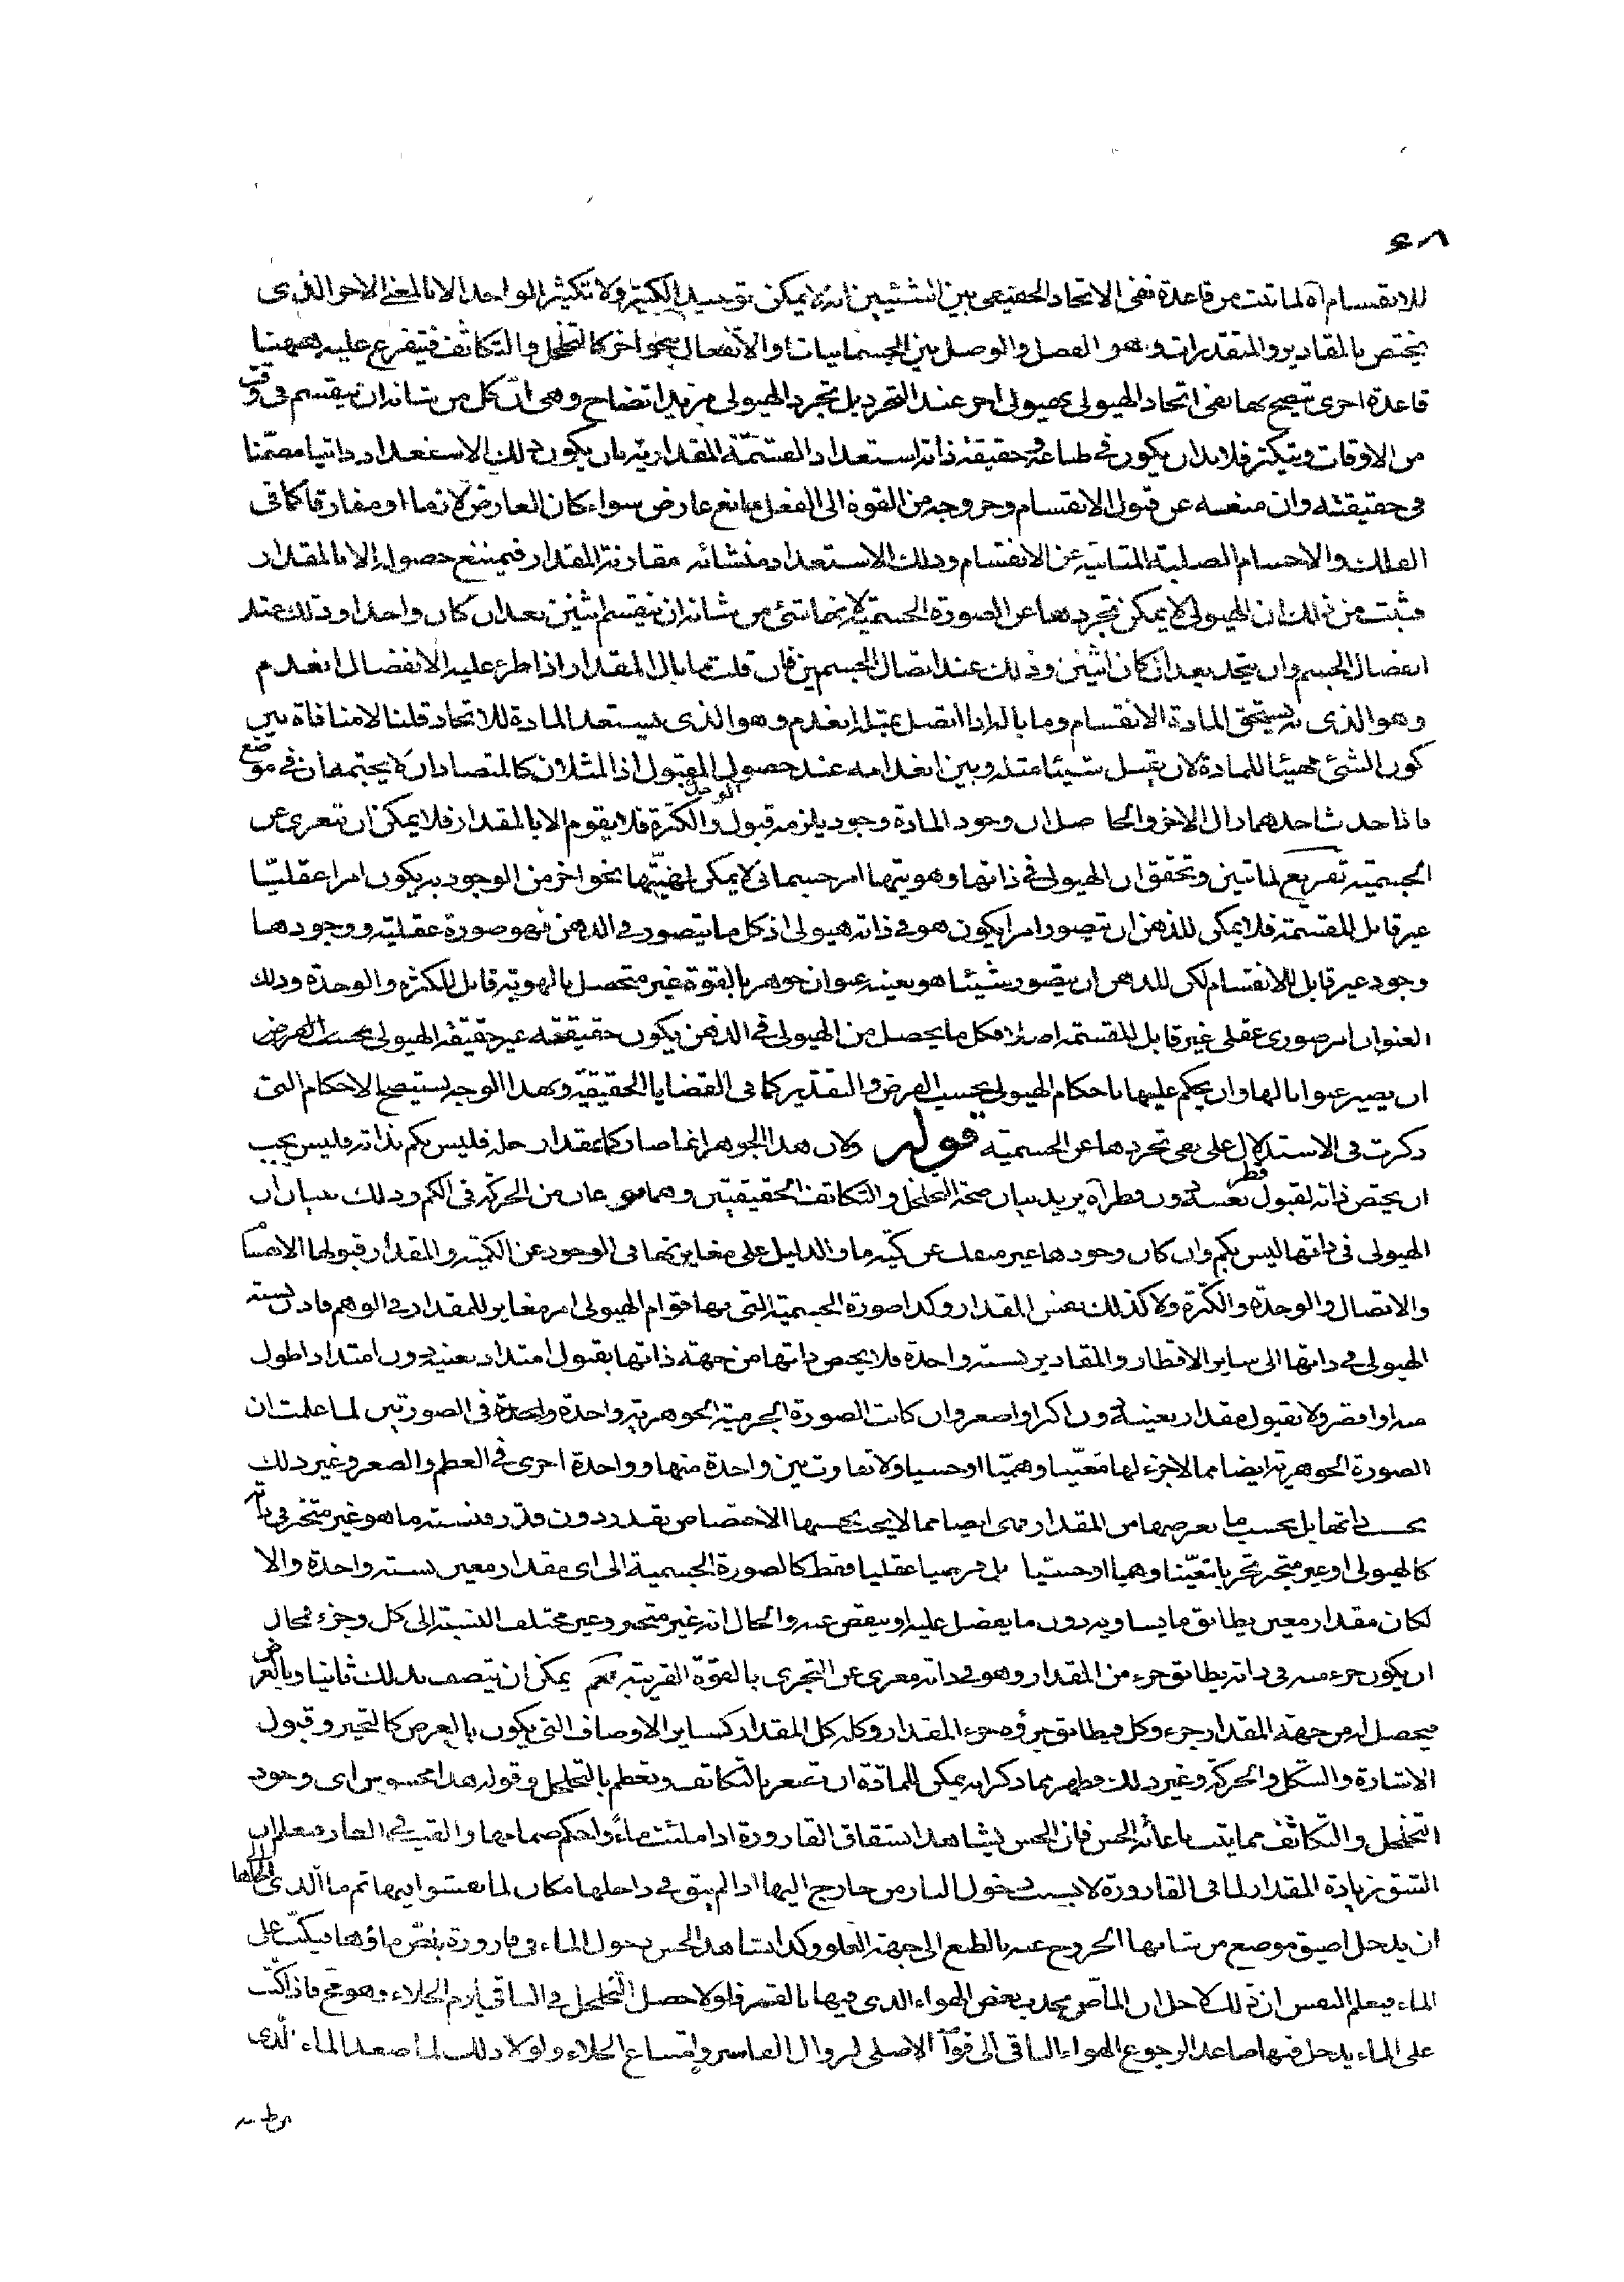 ٦٨
للانقسام آه لما ثبت من قاعدة نفى الاتحاد الحقيقى بين الشيئين انه لا يمكن توحيد الكثير ولا تكثير الواحد الا بالمعنى الاخر الذى
يختص بالمقادير والمتقدرات وهو الفصل والوصل بين الجسمانيات او الانفعال بنحو اخر كالتخلخل والتكاثف فيتفرع عليه ههنا
قاعدة اخرى يتضح بها نفى اتحاد الهيولى بهيولى اخر عند التجرد بل تجرد الهيولى مزيد اتضاح وهى ان كل من شانه ان ينقسم فى وقت
من الاوقات ويتكثر فلا بد ان يكون فى طباعه وحقيقة ذاته استعداد القسمة المقدارية بان يكون ذلك الاستعداد ذاتيا مضمنا
فى حقيقته وان منعه عن قبول الانقسام وخروجه من القوة الى الفعل مانع عارض سواء كان العارض لازما او مفارقا كما فى
الفلك والاجسام الصلبة المتابية عن الانقسام وذلك الاستعداد منشائه مقارنة المقدار فيمتنع حصوله الا بالمقدار
فثبت من ذلك ان الهيولى لا يمكن تجردها عن الصورة الجسمية لانها شئ من شانه ان ينقسم اثنين بعد ان كان واحدا وذلك عند
انفصال الجسم وان يتحد بعد ان كان اثنين وذلك عند اتصال الجسمين فان قلت فما بال المقدار اذا طرء عليه الانفصال انعدم
وهو الذى به يستحق المادة الانقسام وما باله اذا اتصل بمثله انعدم وهو الذى يستعد المادة للاتحاد قلنا لا منافاة بين
كون الشئ مهيئا للمادة لان تقبل شيئا مثله وبين انعدامه عند حصول المقبول اذ المثلان كالمتضادان لا يجتمعان فى موضع
فاذا حدث احدهما زال الاخر والحاصل ان وجود المادة وجود يلزمه قبول الوحدة والكثرة فلا يقوم الا بالمقدار فلا يمكن ان تتعرى عن
الجسمية تفريع لما تبين وتحقق ان الهيولى فى ذاتها وهويتها امر جسمانى لا يمكن لهويتها نحو اخر من الوجود به يكون امرا عقليا
غير قابل للقسمة فلا يمكن للذهن ان يتصور امرا يكون هو فى ذاته هيولى اذ كل ما يتصور فى الذهن فهو صورة عقلية ووجودها
وجود غير قابل للانقسام لكن للذهن ان يتصور شيئا هو بعينه عنوان جوهر بالقوة غير متحصل بالهوية قابل للكثرة والوحدة وذلك
العنوان امر صورى عقلى غير قابل للقسمة اصلا فكل ما يحصل من الهيولى فى الذهن يكون حقيقته غير حقيقة الهيولى بحسب الفرض
ان يصير عنوانا لها وان يحكم عليها باحكام الهيولى بحسب الفرض والتقدير كما فى القضايا الحقيقية وبهذا الوجه يستصح الاحكام التى
ذكرت فى الاستدلال على نفى تجردها عن الجسمية قوله ولان هذا الجوهر انما صار كما بمقدار حله فليس بكم بذاته فليس يجب
ان يختص ذاته لقبول قطر بعينه دون قطر آه يريد بيان صحة التخلخل والتكاثف الحقيقيتين وهما نوعان من الحركة فى الكم وذلك ببيان ان
الهيولى فى ذاتها ليس بكم وان كان وجودها غير منفك عن كمية ما والدليل على مغايرتها فى الوجود عن الكمية والمقدار قبولها الانفصال
والاتصال والوحدة والكثرة ولا كذلك نفس المقدار وكذا صورة الجسمية التى بها قوام الهيولى امر مغاير للمقدار فى الوهم فاذن نسبة
الهيولى فى ذاتها الى ساير الاقطار والمقادير نسبة واحدة فلا يختص ذاتها من جهة ذاتها بقبول امتداد بعينه دون امتداد اطول
منه او اقصر ولا بقبول مقدار بعينه دون اكبر او اصغر وان كانت الصورة الجرمية الجوهرية واحدة واحدة فى الصورتين لما علمت ان
الصورة الجوهرية ايضا مما لا جزء لها معينا وهميا او حسيا ولا تفاوت بين واحدة منها وواحدة اخرى فى العظم والصغر وغير ذلك
بحسب ذاتها بل بحسب ما يعرضها من المقدار فهى ايضا مما لا يجب بحسبها الاختصاص بقدر دون قدر ونسبة ما هو غير متجز فى ذاته
كالهيولى او غير متجز تجزيا متعينا وهميا او حسيا بل فرضيا عقليا فقط كالصورة الجسمية الى اى مقدار معين نسبة واحدة والا
لكان مقدار معين يطابق ما يساويه دون ما يفضل عليه او ينقص عنه والحال انه غير متجز وغير مختلف النسبة الى كل وجزء فمحال
ان يكون جزء منه فى ذاته يطابق جزء من المقدار وهو فى ذاته معرى عن التجزى بالقوة القريبة نعم يمكن ان يتصف بذلك ثانيا وبالعرض
فيحصل له من جهة المقدار جزء وكل فيطابق جزؤه جزء المقدار وكله كل المقدار كساير الاوصاف التى يكون بالعرض كالتحيز وقبول
الاشارة والشكل والحركة وغير ذلك فظهر بما ذكر انه يمكن للمادة ان تصغر بالتكاثف وتعظم بالتخلخل وقوله هذا محسوس اى وجود
التخلخل والتكاثف مما يثبت باعانة الحس فان الحس يشاهد انشقاق القارورة اذا ملئت ماء واحكم صمامها والقيت فى النار فعلم ان
الشق زيادة المقدار لما فى القارورة لا بسبب دخول النار من خارج اليها اذ لم يبق فى داخلها مكان لما يفشوا فيها ثم ما الذى الجاها
ان يدخل اضيق موضع من شانها الخروج عنه بالطبع الى جهة العلو وكذا يشاهد الحس دخول الماء فى قارورة يمص ماؤها فيكب على
الماء فيعلم النفس ان ذلك لاجل ان الماص يجذب بعض الهواء الذى فيها بالقسر فلولا حصل التخلخل فى الباقى لزم الخلاء وهو مح فاذا كبت
على الماء يدخل فيها صاعدا لرجوع الهواء الباقى الى قوامه الاصلى لزوال القاسر وامتناع الخلاء ولولا ذلك لما صعد الماء الذى